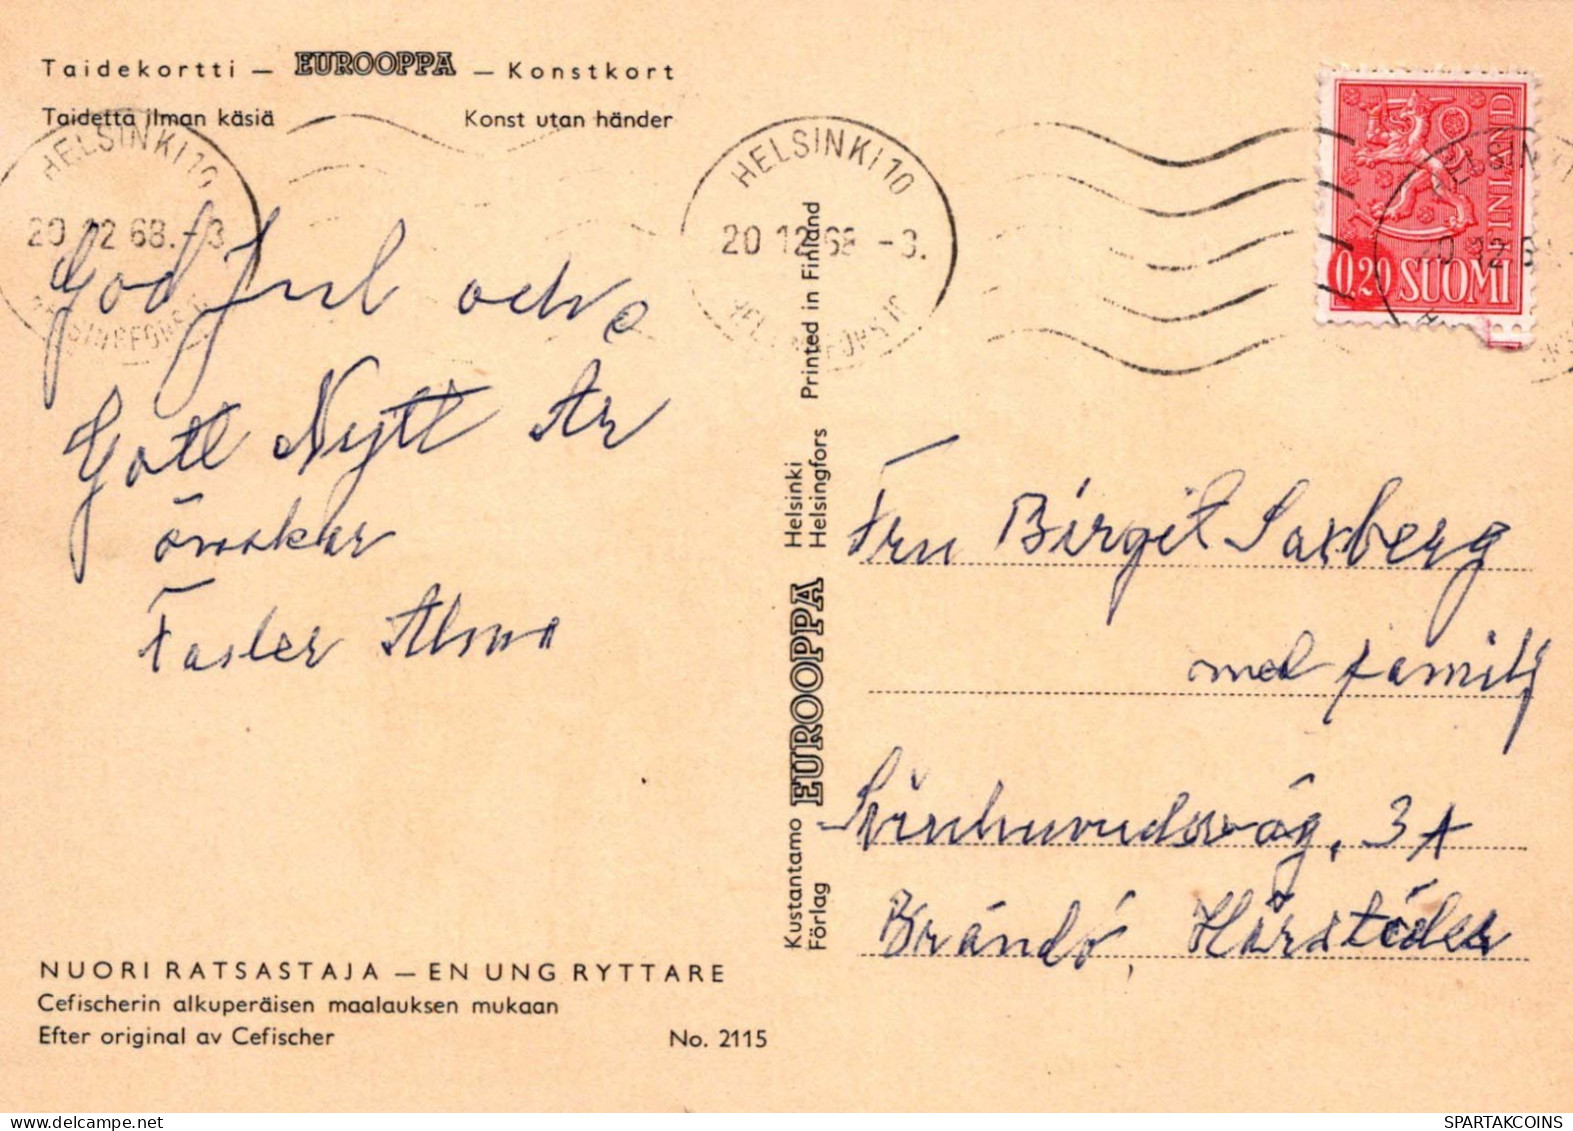 Taidekortti — EUROOPPA — Konstkort
Taidetta ilman käsiä Konst utan händer
HELSINKI 10
20 12 68. -3
HELSINGFORS
HELSINKI 10
20 12 68 -3.
HELSINGFORS 10
FINLAND
0,20 SUOMI
God Jul och
Gott Nytt År
önskar
Faster Alma
Kustantamo EUROOPPA Helsinki Printed in Finland
Förlag Helsingfors
Fru Birgit Saxberg
med familj
Svinhuvudsväg. 3 A
Brändö,
NUORI RATSASTAJA — EN UNG RYTTARE
Cefischerin alkuperäisen maalauksen mukaan
Efter original av Cefischer No. 2115
SPARTAKCOINS